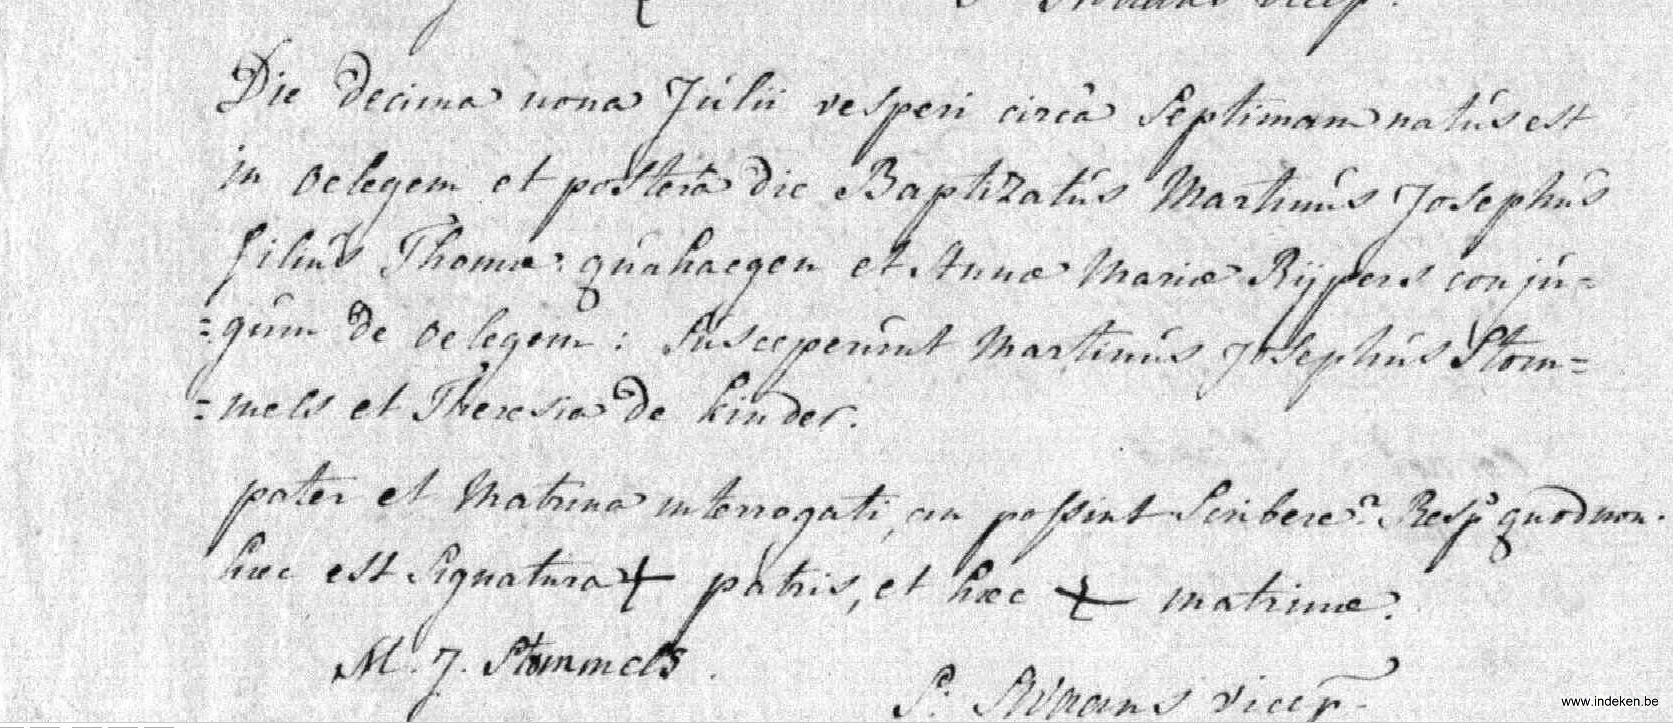 Die decima nona Julii vesperi circa septimam natus est
in oelegem et postera die Baptizatus Martinus Josephus
filius Thomæ quahaegen et Annæ Mariæ Rijpers conju=
=gum de oelegem: susceperunt Martinus Josephus Stom=
=mels et Theresia de kinder.
pater et Matrina interrogati, an possint scribere? Resp. quod non.
hæc est signatura + patris, et hæc + matrinæ.
M. J. Stommels.
P. vicep.
www.indeken.be